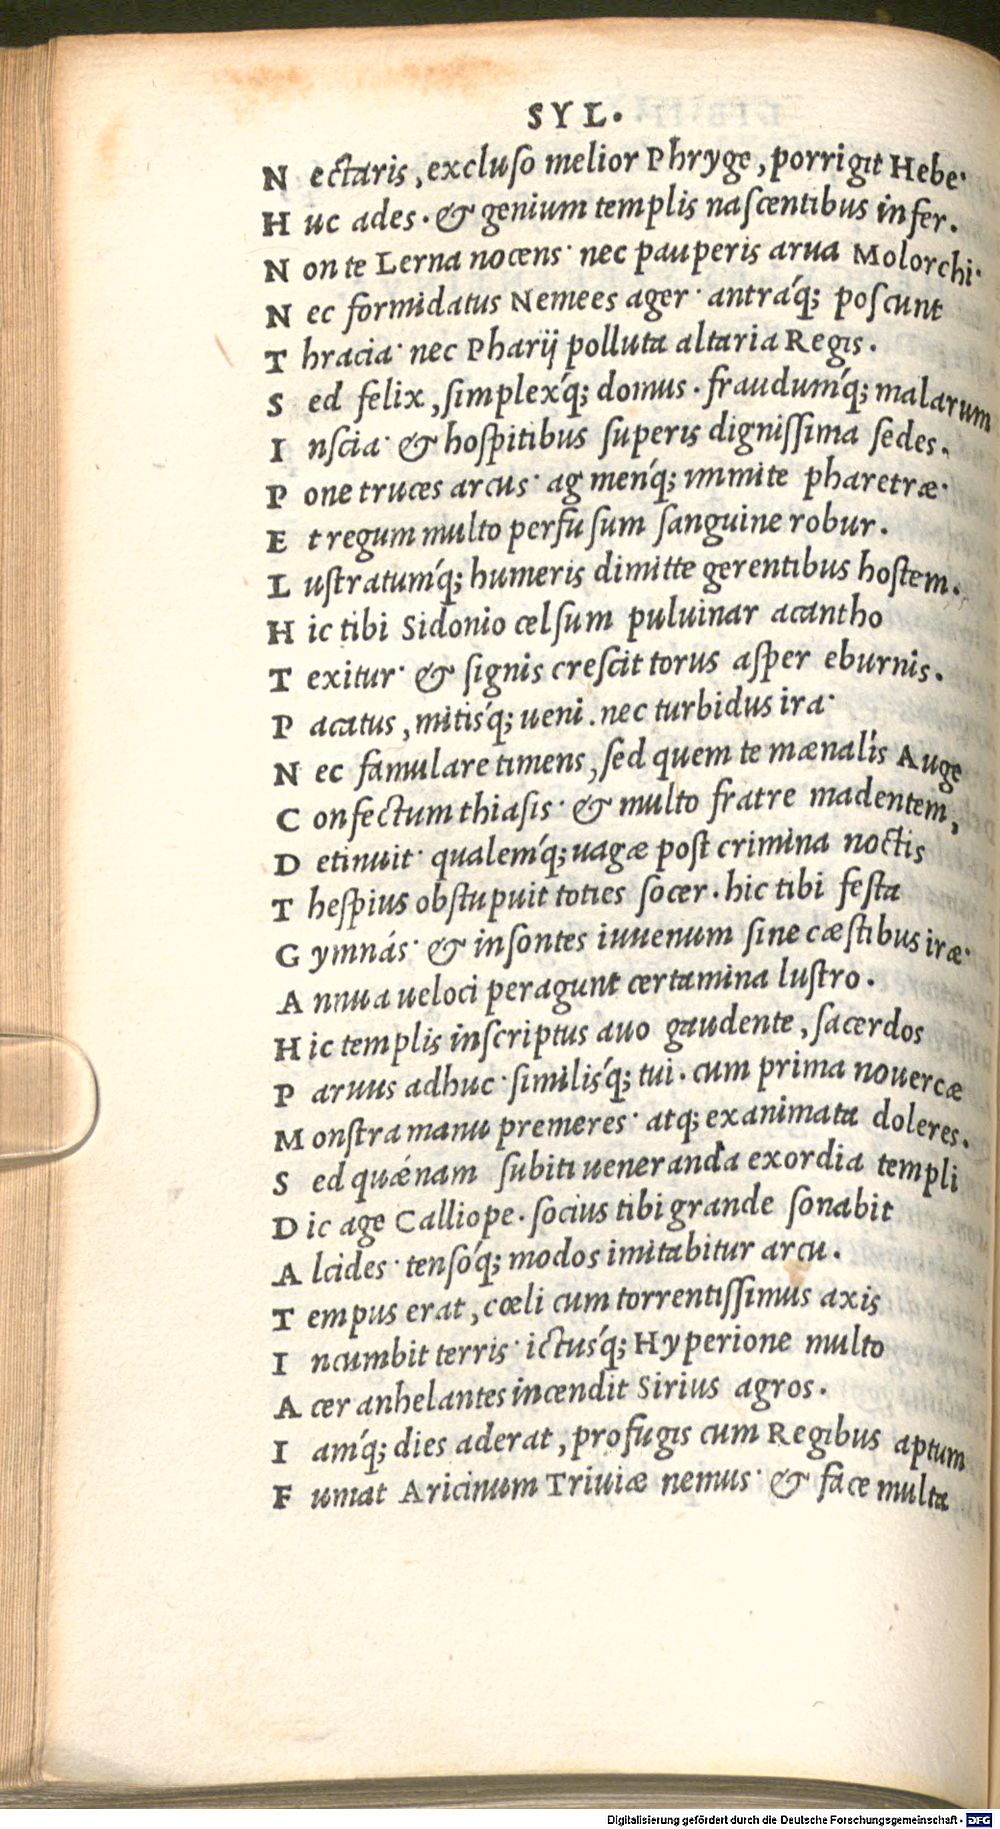 SYL.
N ectaris, excluso melior Phryge, porrigit Hebe·
H uc ades · & genium templis nascentibus infer.
N on te Lerna nocens· nec pauperis arua Molorchi·
N ec formidatus Nemees ager· antráq; poscunt
T hracia· nec Pharij polluta altaria Regis.
S ed felix, simplexq́; domus · fraudumq́; malarum
I nscia· & hospitibus superis dignissima sedes.
P one truces arcus· agmenq́; immite pharetræ·
E t regum multo perfusum sanguine robur.
L ustratumq́; humeris dimitte gerentibus hostem.
H ic tibi Sidonio celsum puluinar acantho
T exitur· & signis crescit torus asper eburnis.
P acatus, mitisq́; ueni. nec turbidus ira·
N ec famulare timens, sed quem te mænalis Auge
C onfectum thiasis· & multo fratre madentem,
D etinuit· qualemq́; uagæ post crimina noctis
T hespius obstupuit toties socer. hic tibi festa
G ymnás· & insontes iuuenum sine cæstibus iræ·
A nnua ueloci peragunt certamina lustro.
H ic templis inscriptus auo gaudente, sacerdos
P aruus adhuc· similisq́; tui. cum prima nouercæ
M onstra manu premeres· atq; exanimata doleres.
S ed quǽnam subiti ueneranda exordia templi
D ic age Calliope. socius tibi grande sonabit
A lcides· tensóq; modos imitabitur arcu.
T empus erat, cœli cum torrentissimus axis
I ncumbit terris· ictusq́; Hyperione multo
A cer anhelantes incendit Sirius agros.
I amq́; dies aderat, profugis cum Regibus aptum
F umat Aricinum Triuiæ nemus· & face multa
Digitalisierung gefördert durch die Deutsche Forschungsgemeinschaft - DFG